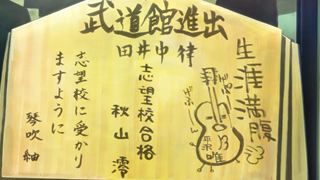 武道館進出
田井中 律
生涯満腹
平沢唯
げぷー
志望校合格
秋山 澪
志望校に受かり
ますように
琴吹 紬